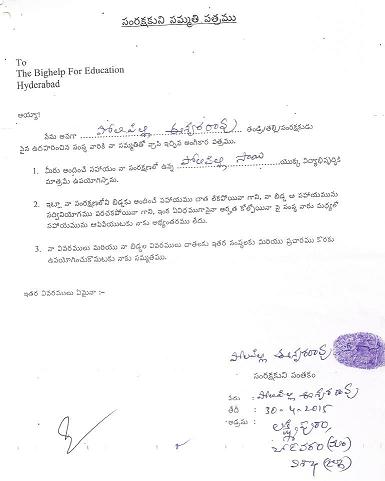 సంరక్షకుని సమ్మతి పత్రము
To
The Bighelp For Education
Hyderabad
అయ్యా!
నేను అనగా పోలిపల్లి ఈశ్వరరావు తండ్రి/తల్లి/సంరక్షకుడు
పైన ఉదహరించిన సంస్థ వారికి నా సమ్మతితో వ్రాసి ఇచ్చిన అంగీకార పత్రము.
1. మీరు అందించే సహాయం నా సంరక్షణలో ఉన్న పోలిపల్లి సాయి యొక్క విద్యాభివృద్ధికి
మాత్రమే ఉపయోగిస్తాను.
2. ఇట్లా నా సంరక్షణలోని బిడ్డకు అందించే సహాయము దాత లేకపోయినా గాని, నా బిడ్డ ఆ సహాయమును
సద్వినియోగము పరచకపోయినా గాని, ఇంక ఏవిధముగానైనా అర్హత కోల్పోయినా పై సంస్థ వారు మధ్యలో
సహాయమును ఆపివేయుటకు నాకు అభ్యంతరము లేదు.
3. నా వివరములు మరియు నా బిడ్డల వివరములు దాతలకు ఇతర సంస్థలకు మరియు ప్రచారము కొరకు
ఉపయోగించుకొనుటకు నాకు సమ్మతము.
ఇతర వివరములు ఏమైనా :-
పోలిపల్లి ఈశ్వరరావు
సంరక్షకుని సంతకం
పేరు : పోలిపల్లి ఈశ్వరరావు
తేది : 30-4-2015
అడ్రసు : లక్ష్మీపురం,